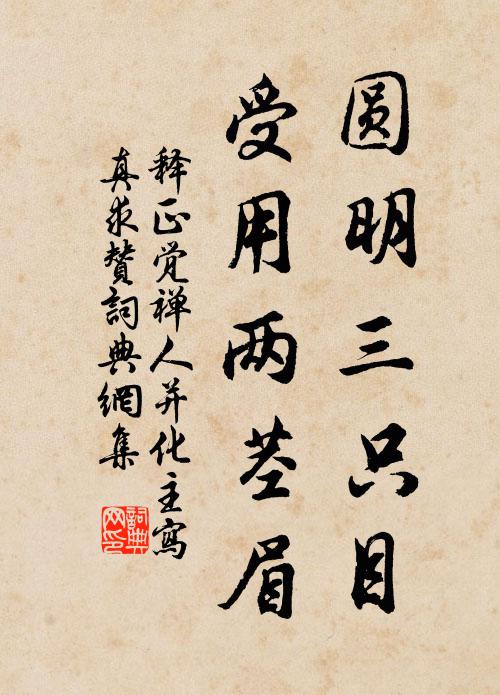 圆明三只目
受用两茎眉
释正觉禅人并化主写
真求赞詞典網集
詞典
网印